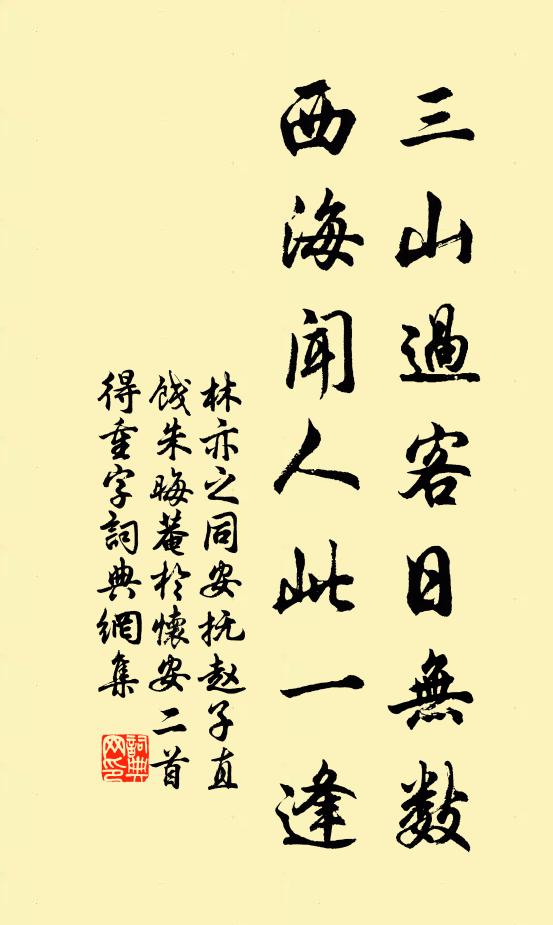 三山過客日無数
西海闻人此一逢
林亦之同安抚赵子直
饯朱晦菴於懷安二首
得重字詞典網集
詞典网印